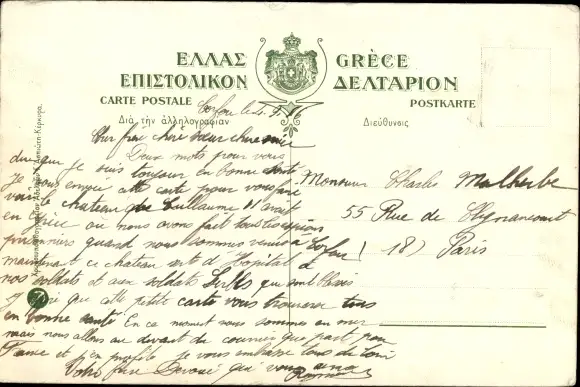 ΕΛΛΑΣ GRÈCE
ΕΠΙΣΤΟΛΙΚΟΝ ΔΕΛΤΑΡΙΟΝ
CARTE POSTALE POSTKARTE
Διὰ τὴν ἀλληλογραφίαν Διεύθυνσις
Corfou le 4
Cher frère chère sœur chère
Deux mots pour vous
dire que je suis toujour en bonne santé
Je vous envoie cette carte pour vous faire
voir le chateau que Guillaume II avait
en Grèce ou nous avons fait tous les
prisonniers quand nous sommes venus à Corfou
maintenant ce chateau sert d'Hopital à
nos soldats et aux soldats Serbes qui sont blessés
que cette petite carte vous trouvera tous
en bonne santé En ce moment nous sommes en mer
mais nous allons au devant du courrier qui part pour
France et j'en profite je vous embrasse tous de
Votre frère Dévoué qui vous aime
Monsieur Charles Malherbe
55 Rue de Clignancourt
(18) Paris